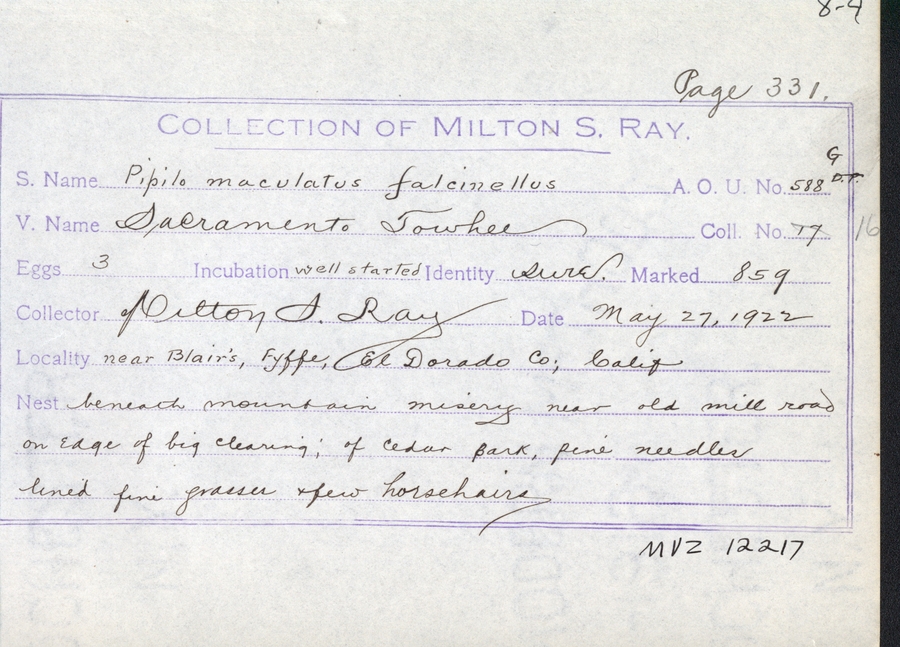 8-4
Page 331.
COLLECTION OF MILTON S. RAY.
G
S. Name Pipilo maculatus falcinellus A. O. U. No. 588 D.P.
V. Name Sacramento Towhee Coll. No. 77 16
Eggs 3 Incubation well started Identity sure. Marked 859
Collector Milton S. Ray Date May 27, 1922
Locality near Blair's, Fyffe, El Dorado Co; Calif
Nest beneath mountain misery near old mill road
on edge of big clearing; of cedar bark, pine needles
lined fine grasses + few horsehairs
MVZ 12217